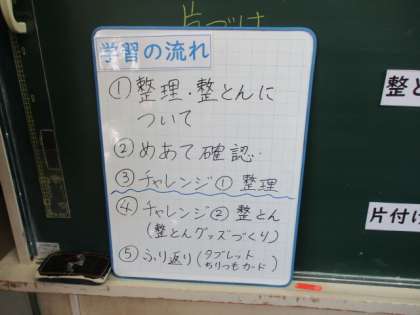 片づけ
学習の流れ
①整理・整とんに
ついて
②めあて確認
③チャレンジ①整理
④チャレンジ②整とん
(整とんグッズづくり)
⑤ふり返り(タブレット
ちりつもカード)
整と
片付け